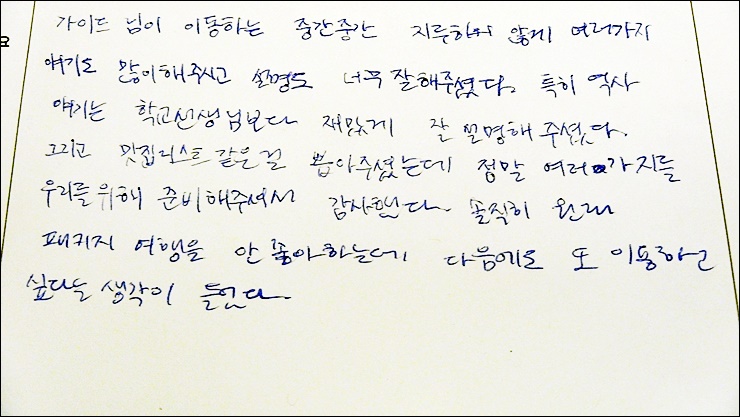 요
가이드 님이 이동하는 중간중간 지루하지 않게 여러가지
얘기도 많이해주시고 설명도 너무 잘해주셨다. 특히 역사
얘기는 학교선생님보다 재밌게 잘 설명해 주셨다.
그리고 맛집리스트 같은걸 뽑아주셨는데 정말 여러가지를
우리를 위해 준비해주셔서 감사했다. 솔직히 원래
패키지 여행을 안 좋아하는데 다음에도 또 이용하고
싶다는 생각이 들었다.